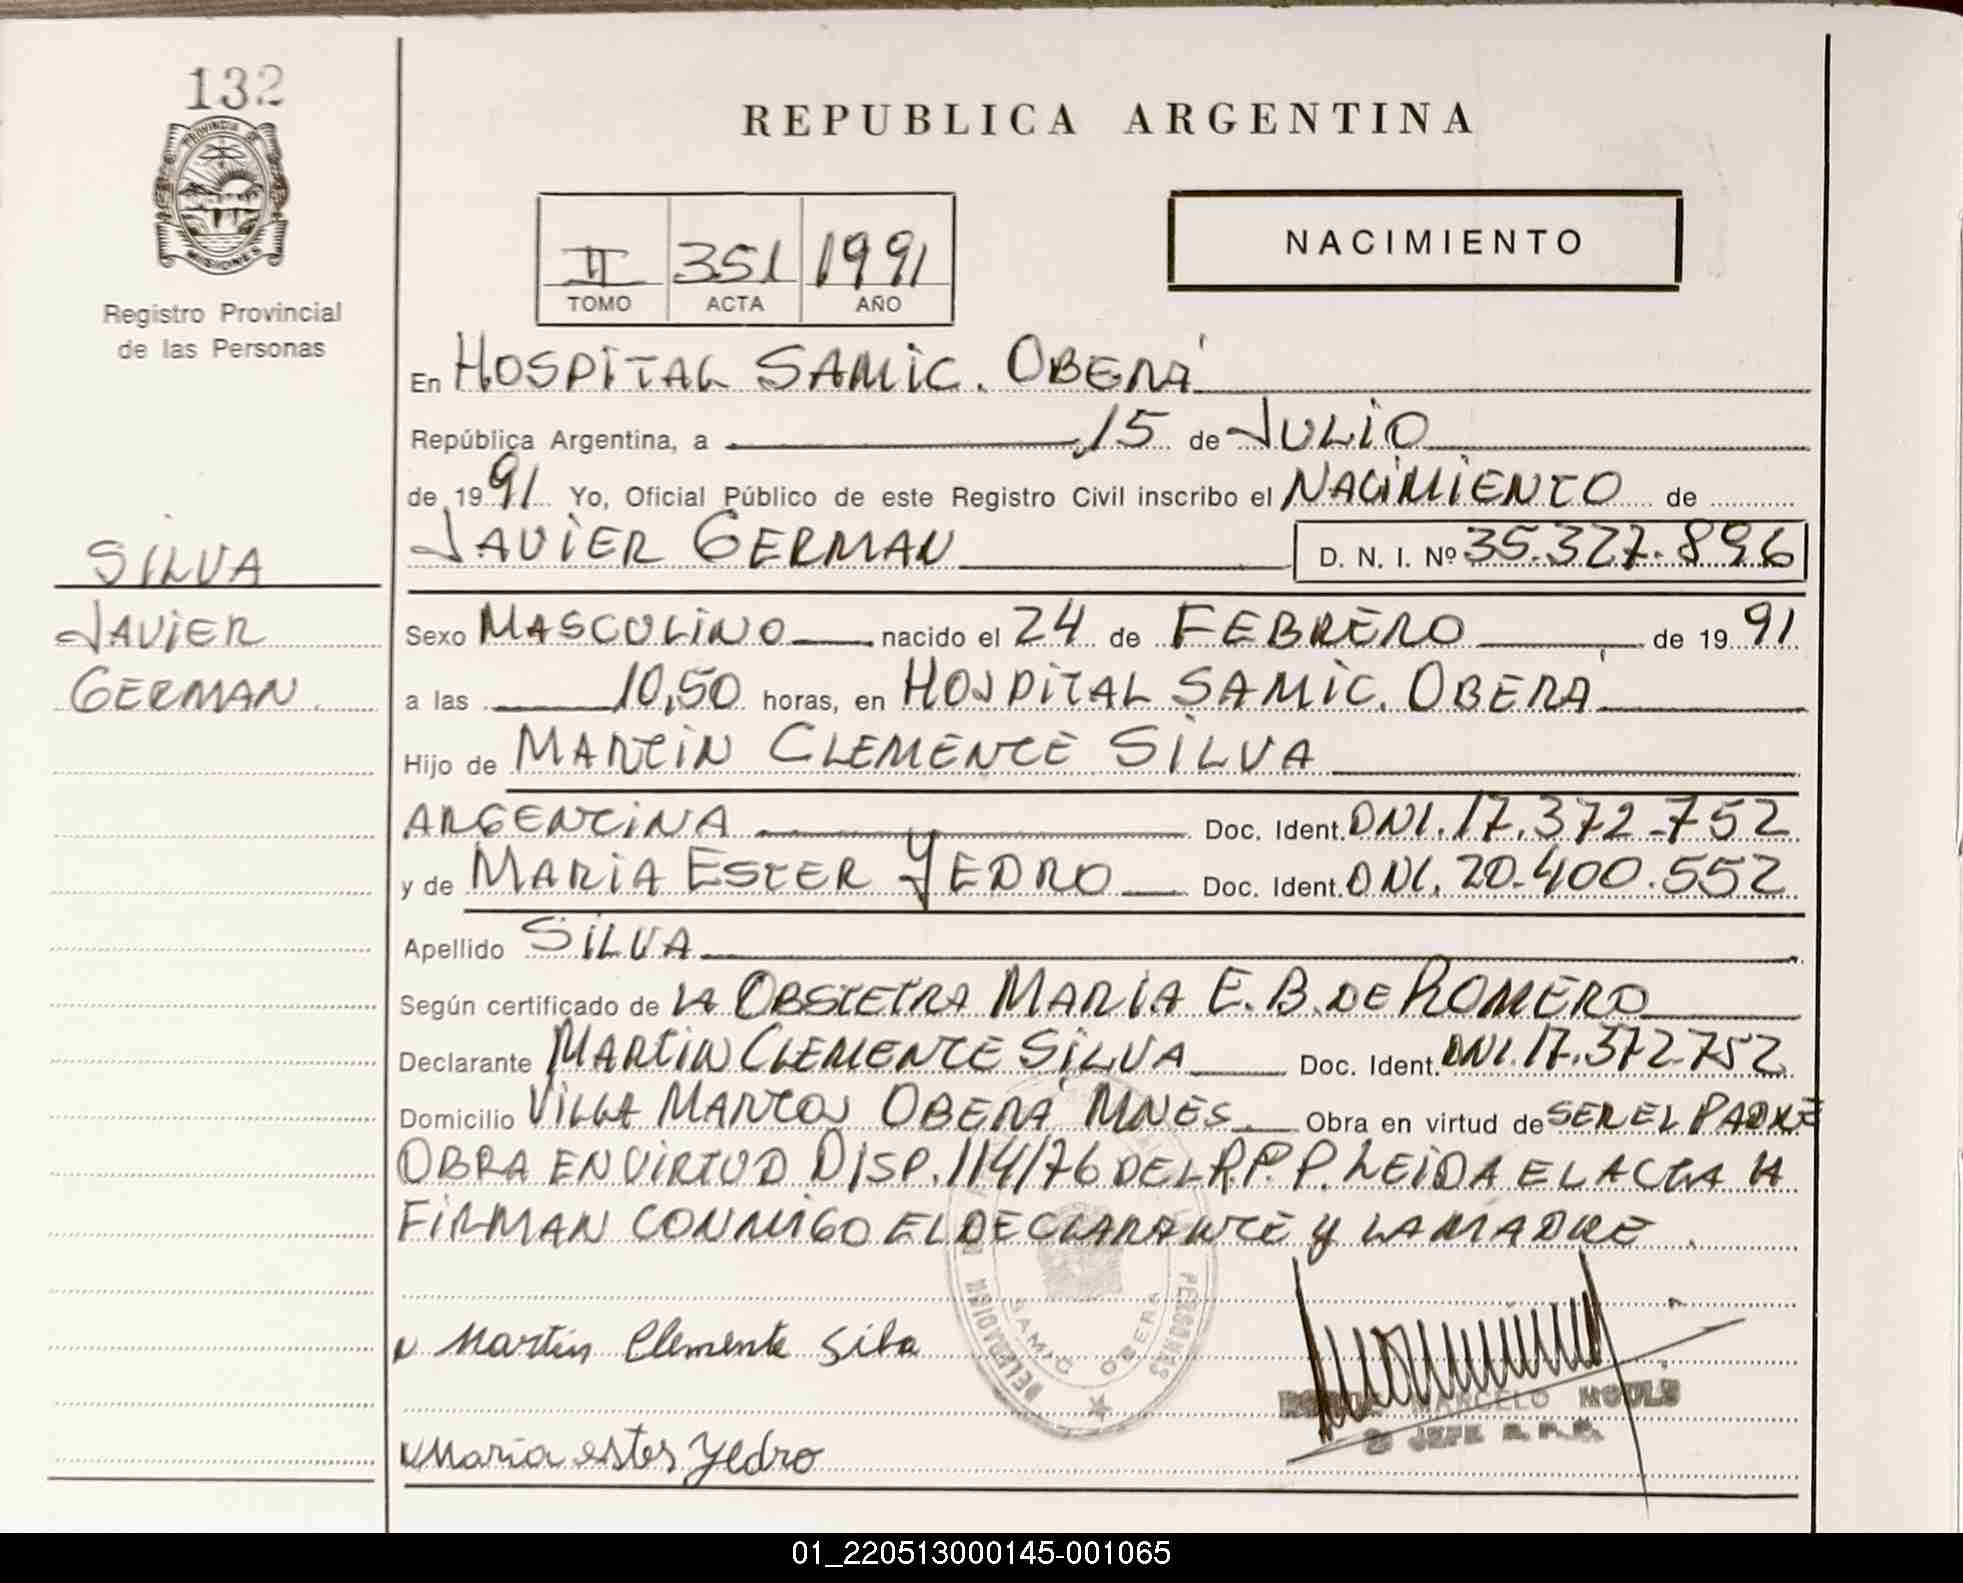 132
PROVINCIA DE
MISIONES
Registro Provincial
de las Personas
SILVA
JAVIER
GERMAN
REPUBLICA ARGENTINA
II 351 1991
TOMO ACTA AÑO
NACIMIENTO
En HOSPITAL SAMIC. OBERÁ
República Argentina, a 15 de JULIO
de 1991 Yo, Oficial Público de este Registro Civil inscribo el NACIMIENTO de
JAVIER GERMAN D. N. I. Nº 35.327.896
Sexo MASCULINO nacido el 24 de FEBRERO de 1991
a las 10,50 horas, en HOSPITAL SAMIC. OBERÁ
Hijo de MARTIN CLEMENTE SILVA
ARGENTINA Doc. Ident. DNI. 17.372.752
y de MARIA ESTER YEDRO Doc. Ident. DNI. 20.400.552
Apellido SILVA
Según certificado de LA OBSTETRA MARIA E. B. DE ROMERO
Declarante MARTIN CLEMENTE SILVA Doc. Ident. DNI. 17.372.752
Domicilio VILLA MARTOS OBERÁ MNES. Obra en virtud de SER EL PADRE
OBRA EN VIRTUD DISP. 114/76 DEL R.P.P. LEIDA EL ACTA LA
FIRMAN CONMIGO EL DECLARANTE Y LA MADRE.
Martin Clemente Silva
DELEGACION PERSONAS
SAMIC OBERA
MARCELO
JEFE R. P. P.
Maria ester Yedro
01_220513000145-001065